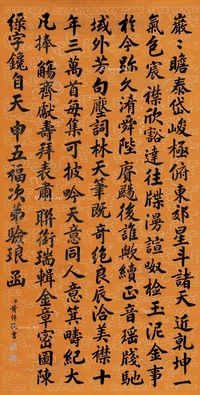 巖〻瞻泰岱峻極俯東郊星斗諸天近乾坤一
氣包宸襟欣豁達往牒漫諠呶檢玉泥金事
於今跡久淆舜陛賡颺後誰歟續正音瑤牋馳
域外芳句壓詞林天筆既奇絕良辰洽美襟十
年三萬首每集可披吟天意同人意箕疇紀大
凡捧觴齊獻壽拜表肅聯銜瑞輯金章密圖陳
綠字鑱自天申五福次第驗琅函